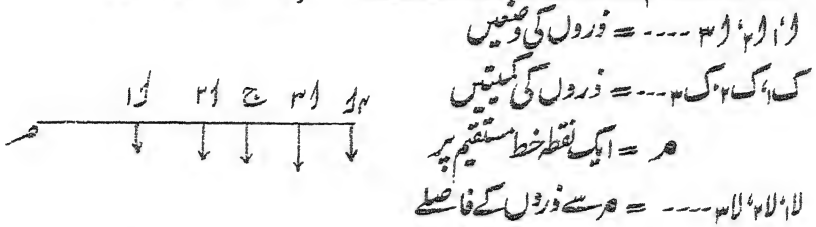 ا₁، ا₂، ا₃ ---- = ذروں کی وضعیں
ک₁، ک₂، ک₃ --- = ذروں کی کمیتیں
م = ایک نقطہ خط مستقیم پر
لا₁، لا₂، لا₃ ---- = م سے ذروں کے فاصلے
م ا₁ ا₂ ج ا₃ ا₄